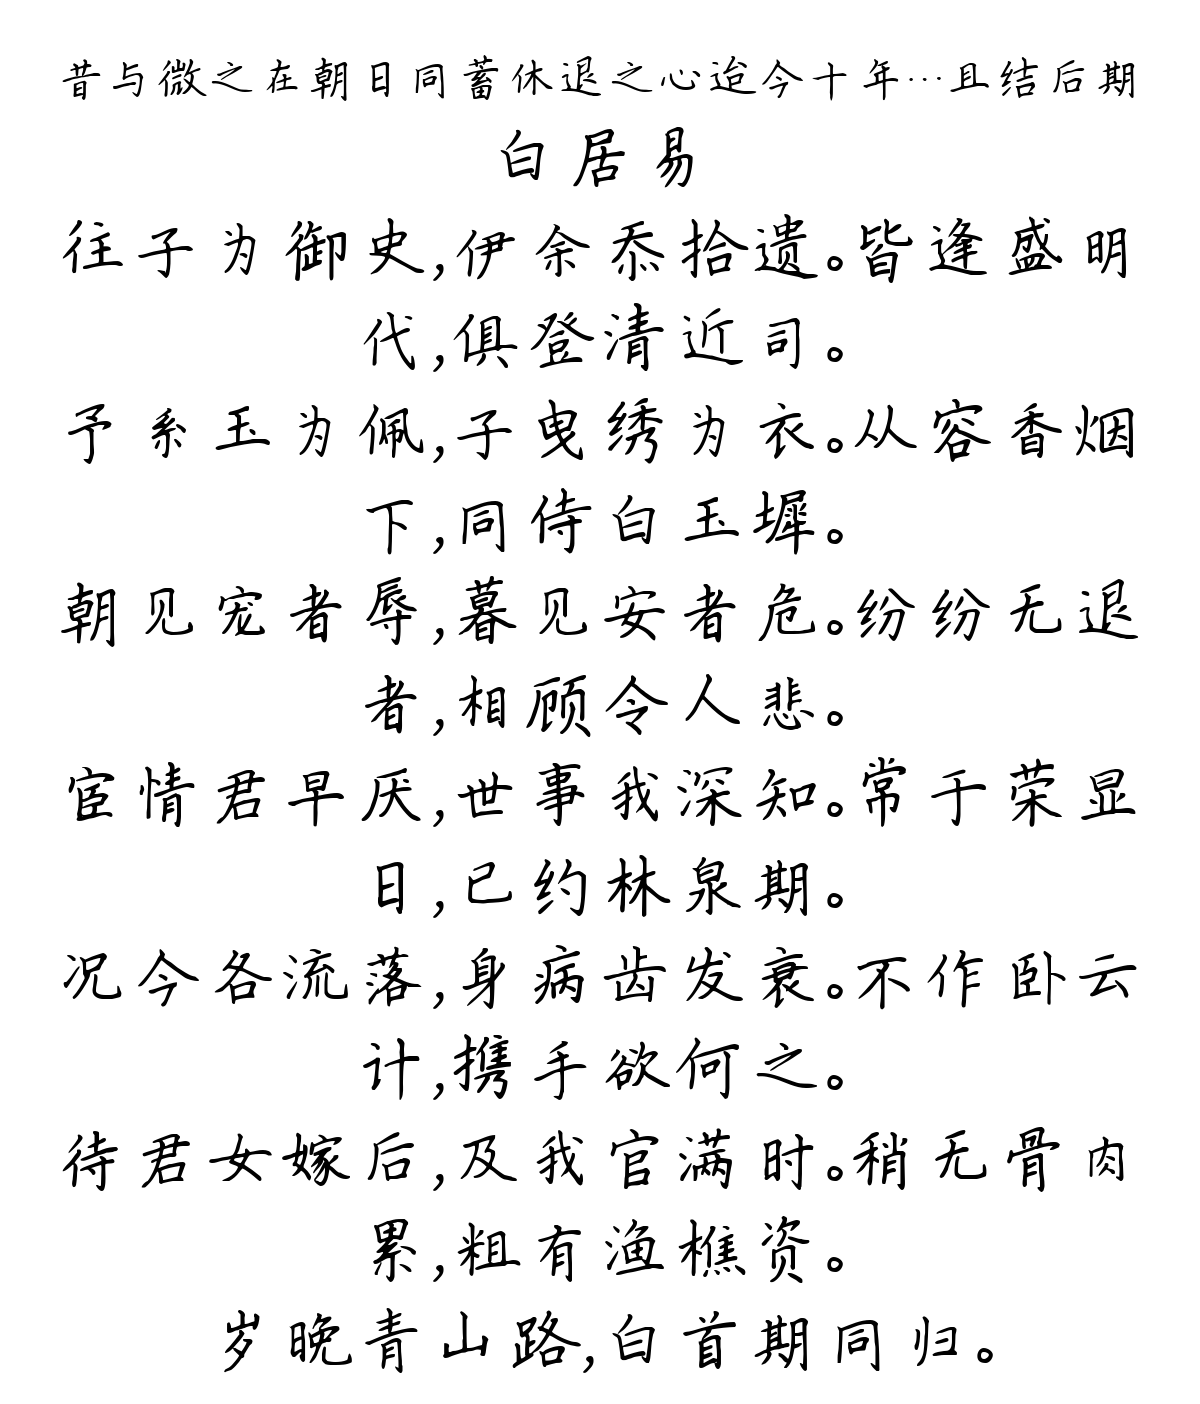 昔与微之在朝日同蓄休退之心迨今十年…且结后期
白居易
往子为御史,伊余忝拾遗。皆逢盛明
代,俱登清近司。
予系玉为佩,子曳绣为衣。从容香烟
下,同侍白玉墀。
朝见宠者辱,暮见安者危。纷纷无退
者,相顾令人悲。
宦情君早厌,世事我深知。常于荣显
日,已约林泉期。
况今各流落,身病齿发衰。不作卧云
计,携手欲何之。
待君女嫁后,及我官满时。稍无骨肉
累,粗有渔樵资。
岁晚青山路,白首期同归。